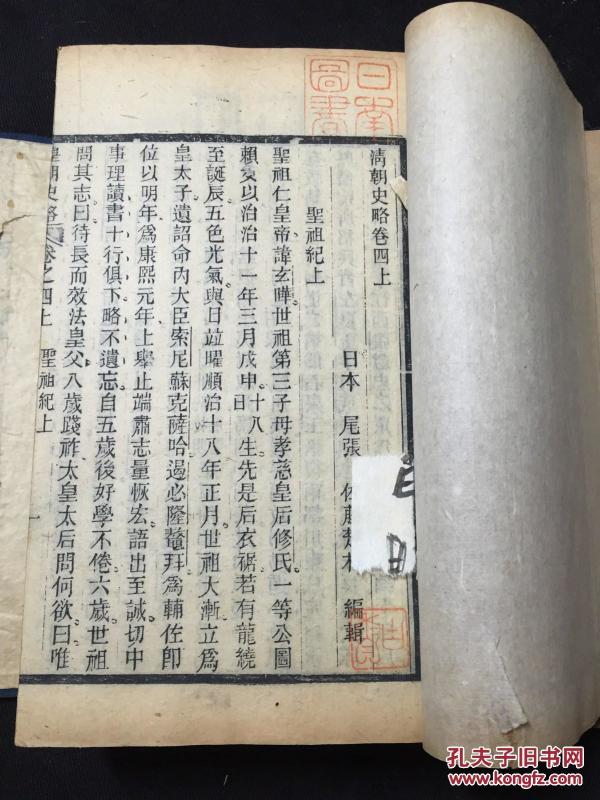 清朝史略卷四上
日本 尾張 佐藤楚材 編輯
聖祖紀上
聖祖仁皇帝諱玄曄世祖第三子母孝慈皇后修氏一等公圖
賴女以治治十一年三月戊申十八日生先是后衣裾若有龍繞
至誕辰五色光氣與日竝曜順治十八年正月世祖大漸立爲
皇太子遺詔命內大臣索尼蘇克薩哈遏必隆鼇拜爲輔佐卽
位以明年爲康熙元年上舉止端肅志量恢宏語出至誠切中
事理讀書十行俱下略不遺忘自五歲後好學不倦六歲世祖
問其志曰待長而效法皇父八歲踐祚太皇太后問何欲曰唯
朝史略 卷之四上 聖祖紀上 一
圖書
孔夫子旧书网
www.kongfz.com